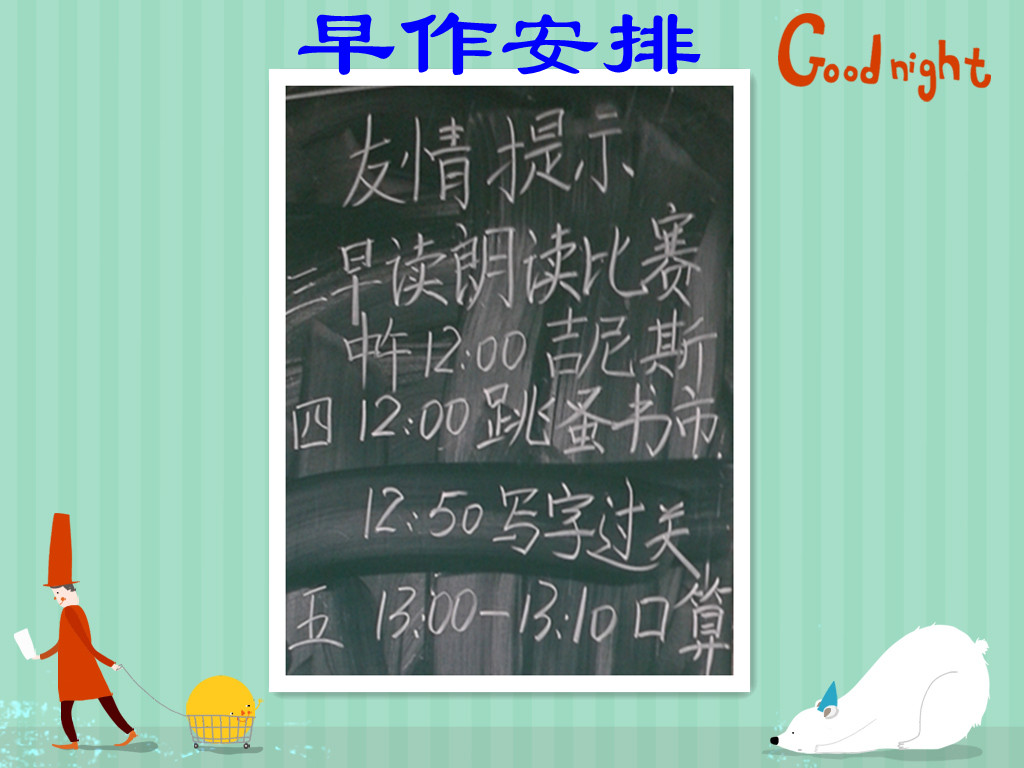 早作安排
Good night
友情提示
三早读朗读比赛
中午12:00吉尼斯
四 12:00跳蚤书市
12:50写字过关
五 13:00-13:10口算